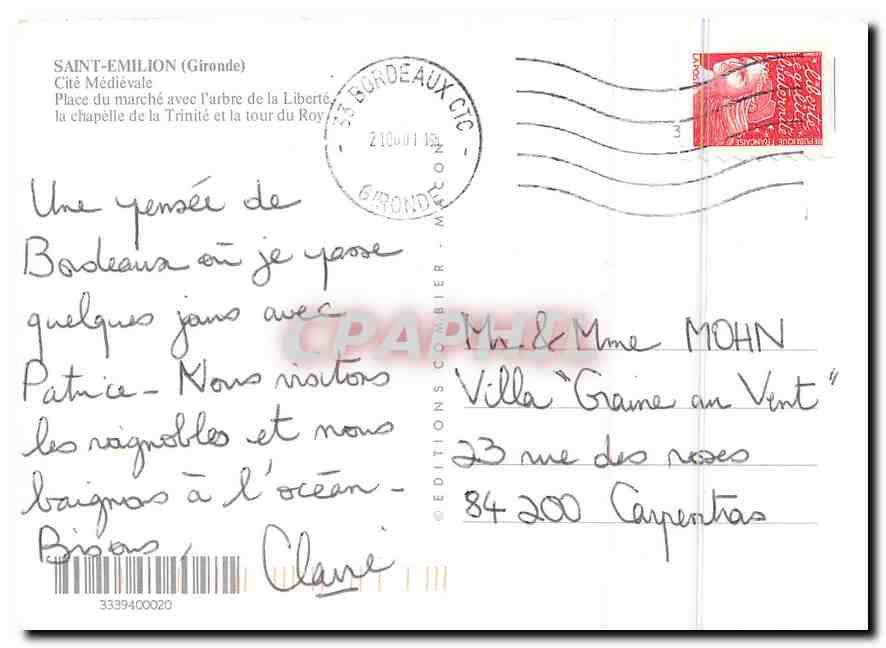 SAINT-EMILION (Gironde)
Cité Médiévale
Place du marché avec l'arbre de la Liberté
la chapelle de la Trinité et la tour du Roy
33 BORDEAUX CTC
GIRONDE
3
LA POS
liberté
égalité
fraternité
REPUBLIQUE FRANÇAISE
Une pensée de
Bordeaux où je passe
quelques jours avec
Patrice_ Nous visitons
les vignobles et nous
baignons à l'océan_
Bisous,
Claire
© EDITIONS COMBIER - MACON
CPAPHIL
Mr & Mme MOHN
Villa "Graine au Vent"
23 rue des roses
84200 Carpentras
3339400020